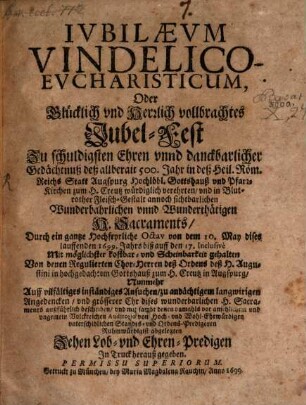 7.
IVBILÆVM
VINDELICO-
EVCHARISTICUM,
Oder
Glücklich vnd Herrlich vollbrachtes
Jubel-Fest
Zu schuldigsten Ehren vnnd danckbarlicher
Gedächtnuß deß allberait 500. Jahr in deß Heil. Röm.
Reichs Statt Augspurg Hochlöbl. Gottshauß vnd Pfarr-
Kirchen zum H. Creutz würdiglich verehrten/ vnd in Blut-
rother Fleisch-Gestalt annoch sichtbarlichen
Wunderbahrlichen vnnd Wunderthätigen
H. Sacraments/
Durch ein gantze Hochfeyrliche Octav von dem 10. May dises
lauffenden 1699. Jahrs biß auff den 17. Inclusivè
Mit möglichster Kostbar- vnd Scheinbarkeit gehalten
Von denen Regulierten Chor-Herren deß Ordens deß H. Augu-
stini in hochgedachtem Gottshauß zum H. Creutz in Augspurg/
Nunmehr
Auff vilfältiges inständiges Ansuchen/ zu andächtigem langwirigen
Angedencken/ vnd grösserer Ehr dises wunderbarlichen H. Sacra-
ments außführlich beschriben/ vnd
von Hoch- vnd Wohl-Ehrwürdigen
vnterschidlichen Standts- vnd Ordens-Predigeren
Ruhmwürdigist abgelegten
Zehen Lob- vnd Ehren-Predigen
In Truck herauß gegeben.
PERMISSU SUPERIORUM.
Getruckt zu München/ bey Maria Magdalena Rauchin/ Anno 1699.